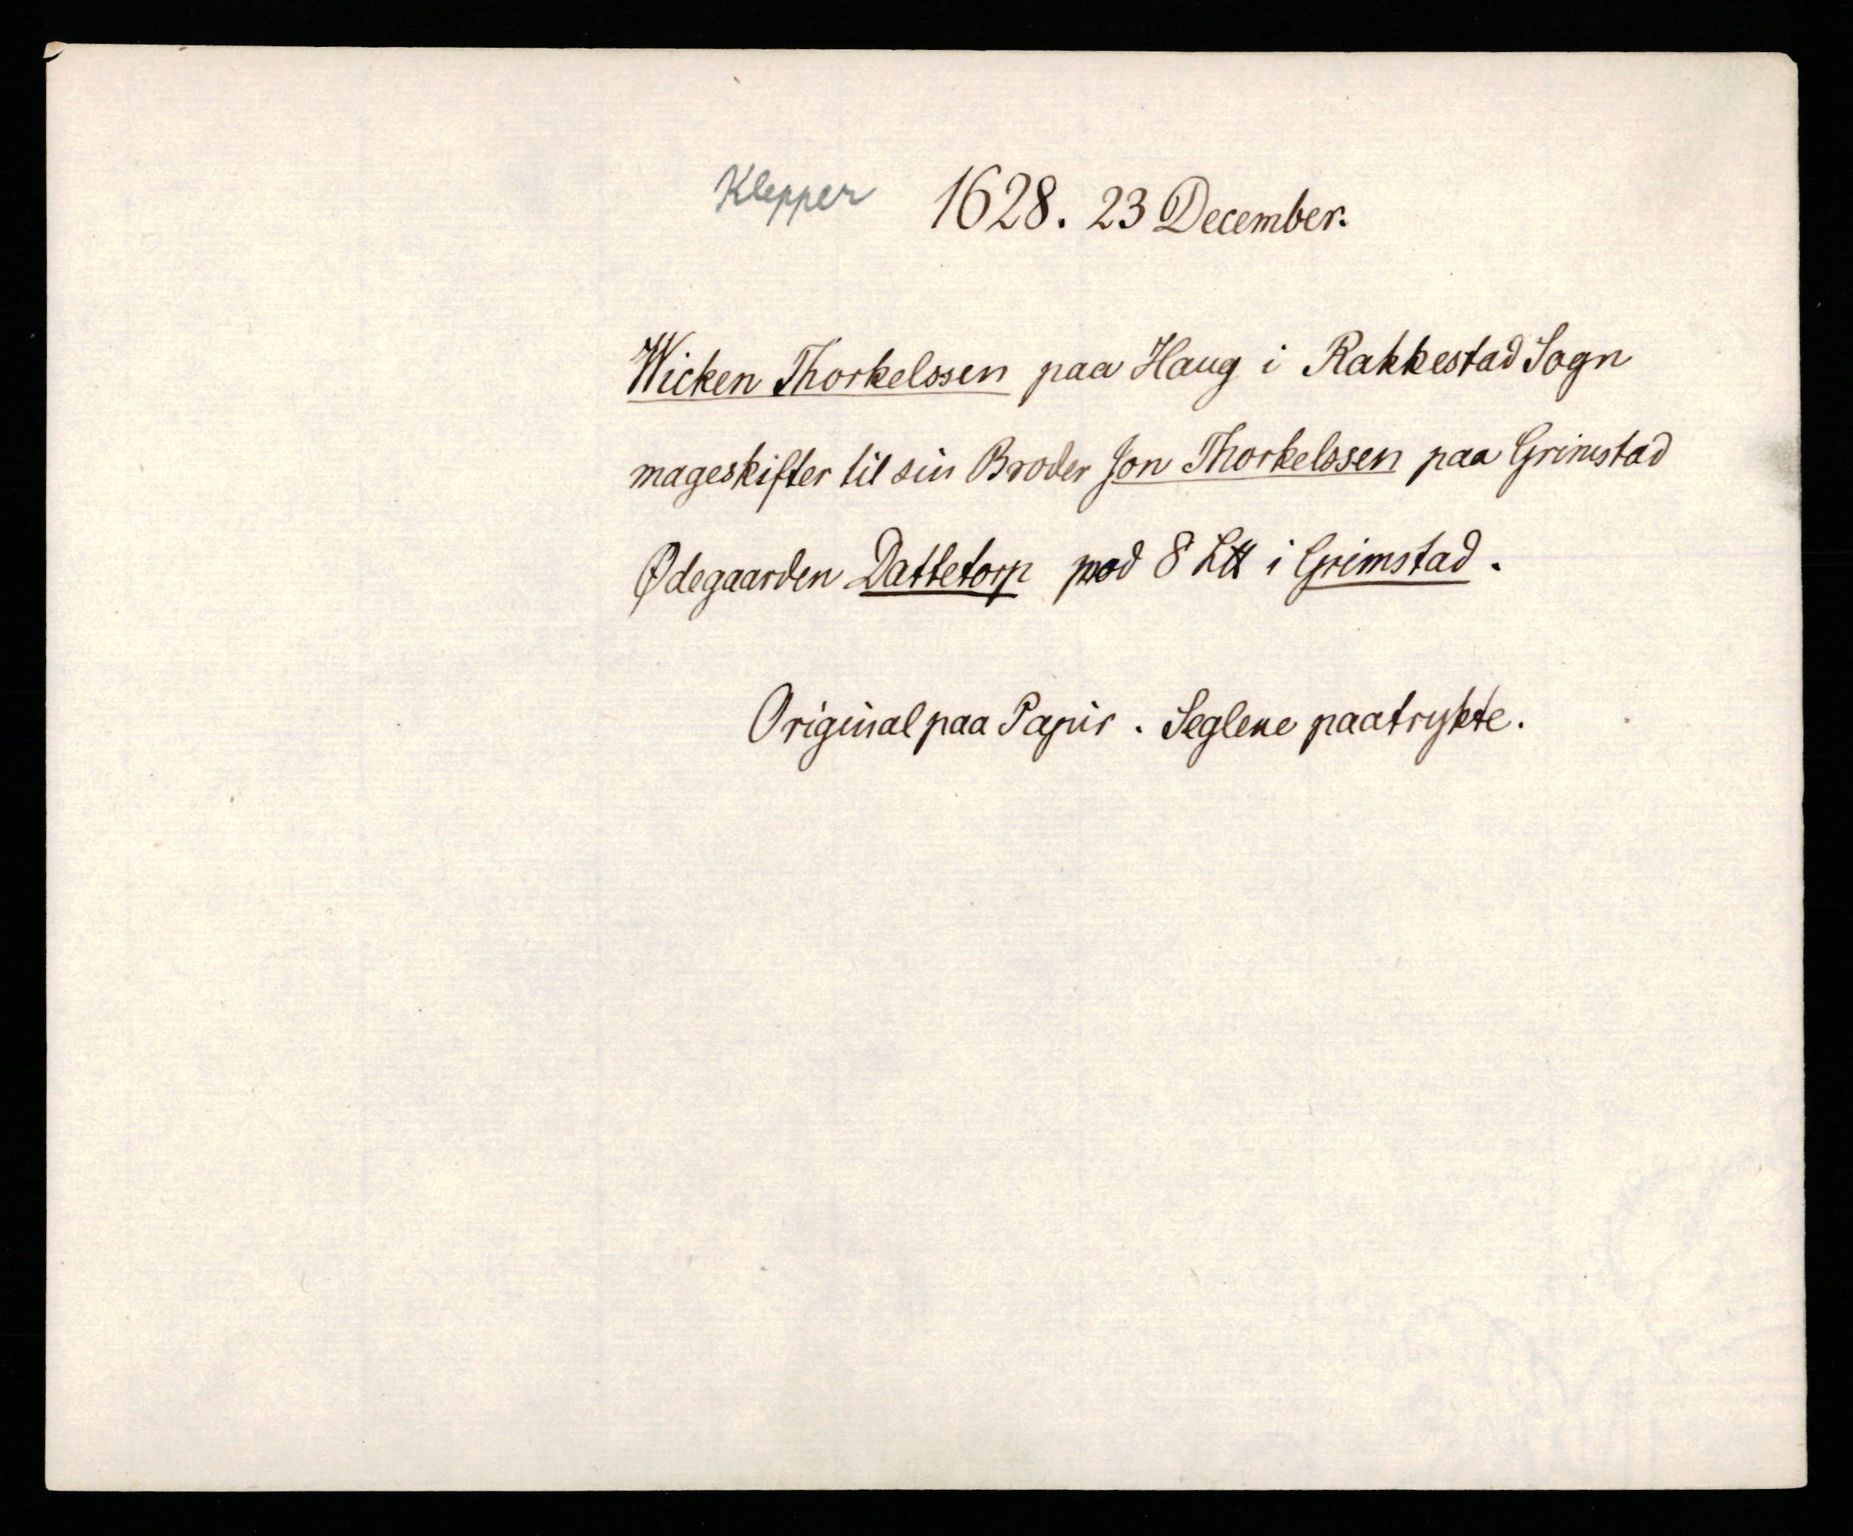 Klepper 1628. 23 December.
Wicken Thorkelssen paa Haug i Rakkestad Sogn
mageskifter til sin Broder Jon Thorkelssen paa Grimstad
Ødegaarden Dattetorp mod 8 L℔ i Grimstad.
Original paa Papir. Seglene paatrykte.